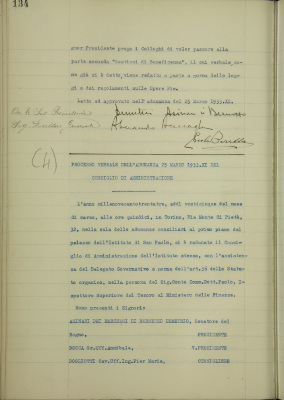 134
gnor Presidente prega i Colleghi di voler passare alla
parte seconda "Gestioni di Beneficenza", il cui verbale, co-
me già si è detto, viene redatto a parte a norma delle leg-
gi e dei regolamenti sulle Opere Pie.
Letto ed approvato nell'adunanza del 25 marzo 1933.XI.
(4)
PROCESSO VERBALE DELL'ADUNANZA 25 MARZO 1933.XI DEL
CONSIGLIO DI AMMINISTRAZIONE
L'anno millenovecentotrentatre, addì venticinque del mese
di marzo, alle ore quindici, in Torino, Via Monte di Pietà,
32, nella sala delle adunanze consiliari al primo piano del
palazzo dell'Istituto di San Paolo, si è radunato il Consi-
glio di Amministrazione dell'Istituto stesso, con l'assisten-
za del Delegato Governativo a norma dell'art.36 dello Statu-
to organico, nella persona del Sig. Comm.Dott.Paolo, Is-
pettore Superiore del Tesoro al Ministero nelle Finanze.
Sono presenti i Signori:
ASINARI DEI MARCHESI DI BERNEZZO DEMETRIO, Senatore del
Regno, PRESIDENTE
Gr.Uff.Annibale, V.PRESIDENTE
Cav.Uff.Ing.Pier Maria, CONSIGLIERE